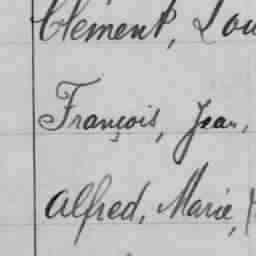 Clément, Lou
François, Jean,
Alfred, Marie,